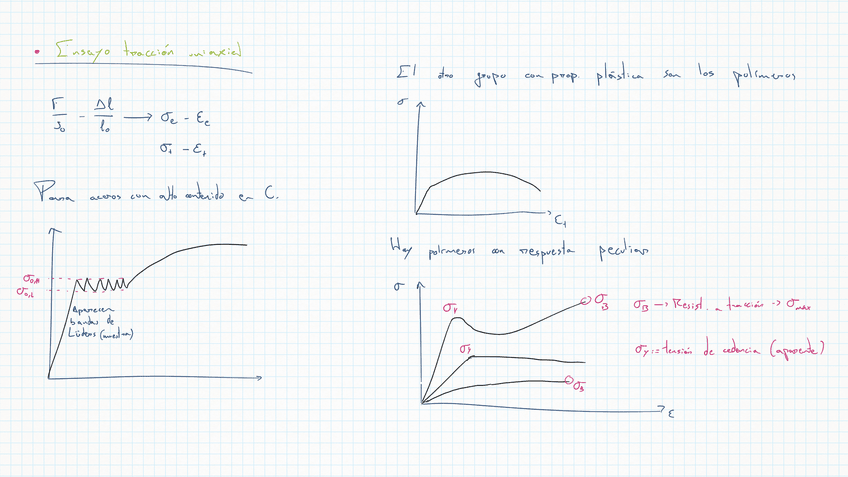 • Ensayo tracción uniaxial
F/S₀ - Δl/l₀ → σe - εe
σt - εt
Para aceros con alto contenido en C.
σ0,H
σ0,L
Aparecen
bandas de
Lüders (muestra)
El otro grupo con prop. plástica son los polímeros
σ
εt
Hay polímeros con respuesta peculiar
σ
σy
σB
σB → Resist. a tracción → σmax
σy := tensión de cedencia (aparente)
σy
σB
ε